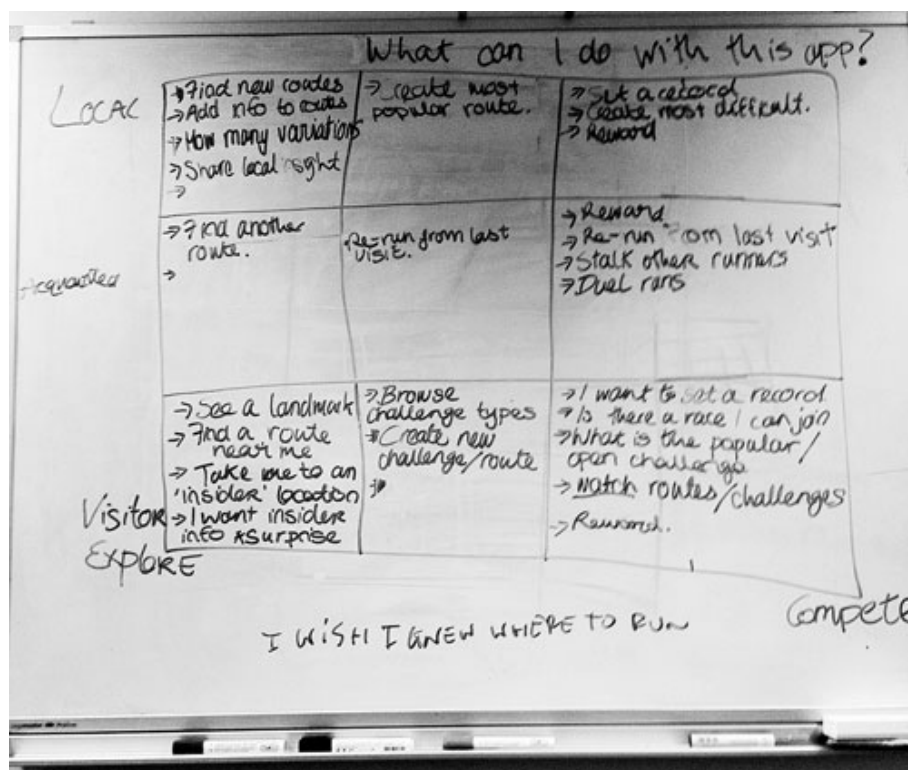 What can I do with this app?
LOCAL
→ Find new routes
→ Add info to routes
→ How many variations
→ Share local insight
→
→ Create most
popular route.
→ Set a record
→ Create most difficult.
→ Reward
Acquainted
→ Find another
route.
→
Re-run from last
visit.
→ Reward
→ Re-run from last visit
→ Stalk other runners
→ Duel runs
Visitor
→ See a landmark
→ Find a route
near me
→ Take me to an
'insider' location
→ I want insider
info *surprise
→ Browse
challenge types
→ Create new
challenge/route
→
→ I want to set a record
→ Is there a race I can join
→ What is the popular/
open challenge
→ Match routes/challenges
→ Reward.
EXPLORE
Compete
I WISH I KNEW WHERE TO RUN